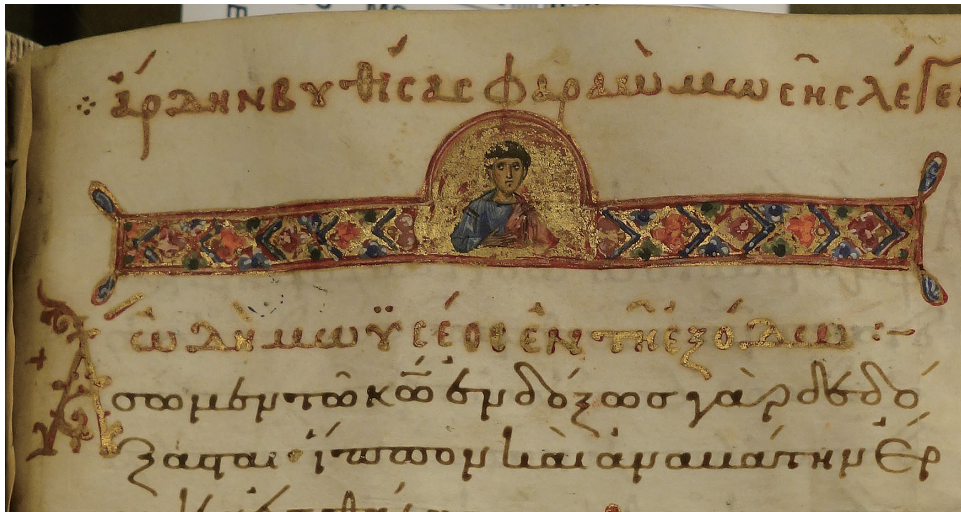 ἄρδην βυθίσας φαραὼ μωσῆς λέγε
ὠδὴ μωϋσέος ἐν τῆ ἐξόδω :~
Ἄσωμεν τῶ κω ἐνδόξωσ γὰρ δεδό
ξασται· ἵππον καὶ ἀναβάτην ἔρ